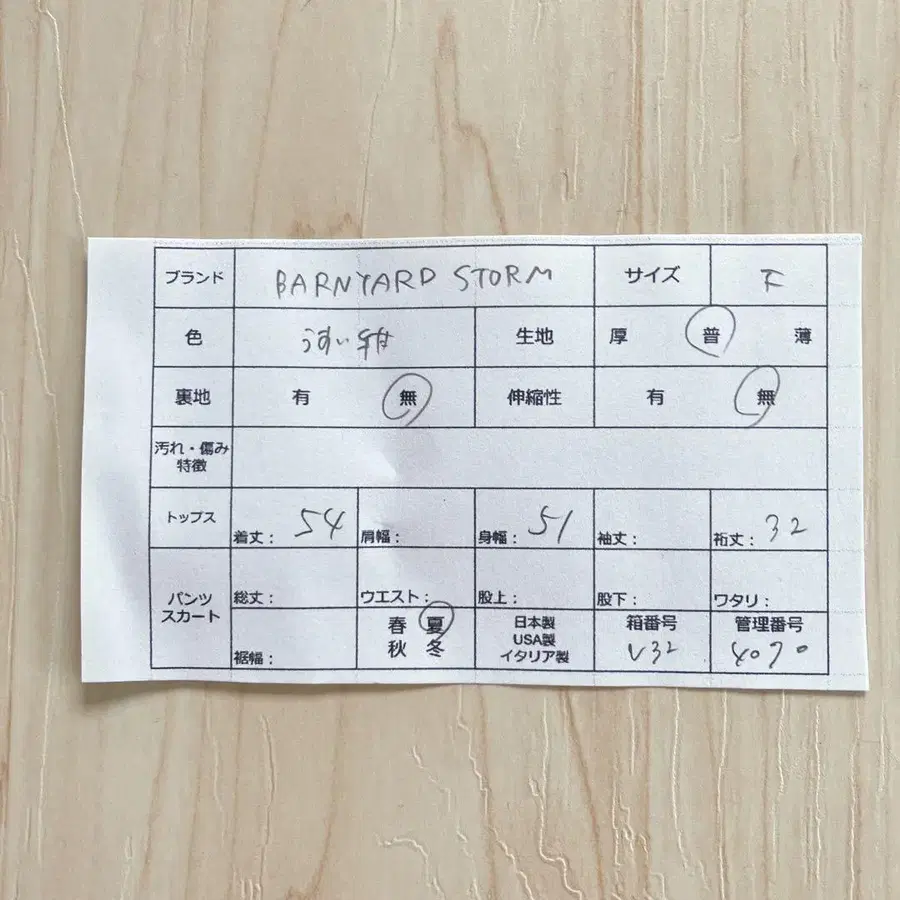 ブランド BARNYARD STORM サイズ F
色 うすい紺 生地 厚 普 薄
裏地 有 無 伸縮性 有 無
汚れ・傷み
特徴
トップス 着丈: 54 肩幅: 身幅: 51 袖丈: 裄丈: 32
パンツ
スカート
総丈: ウエスト: 股上: 股下: ワタリ:
裾幅:
春 夏
秋 冬
日本製
USA製
イタリア製
箱番号
V32
管理番号
4070